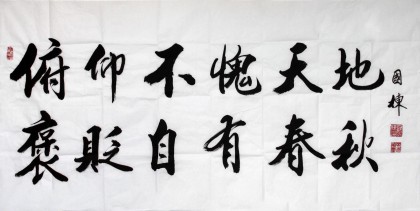 俯仰不愧天地
褒貶自有春秋
国棟